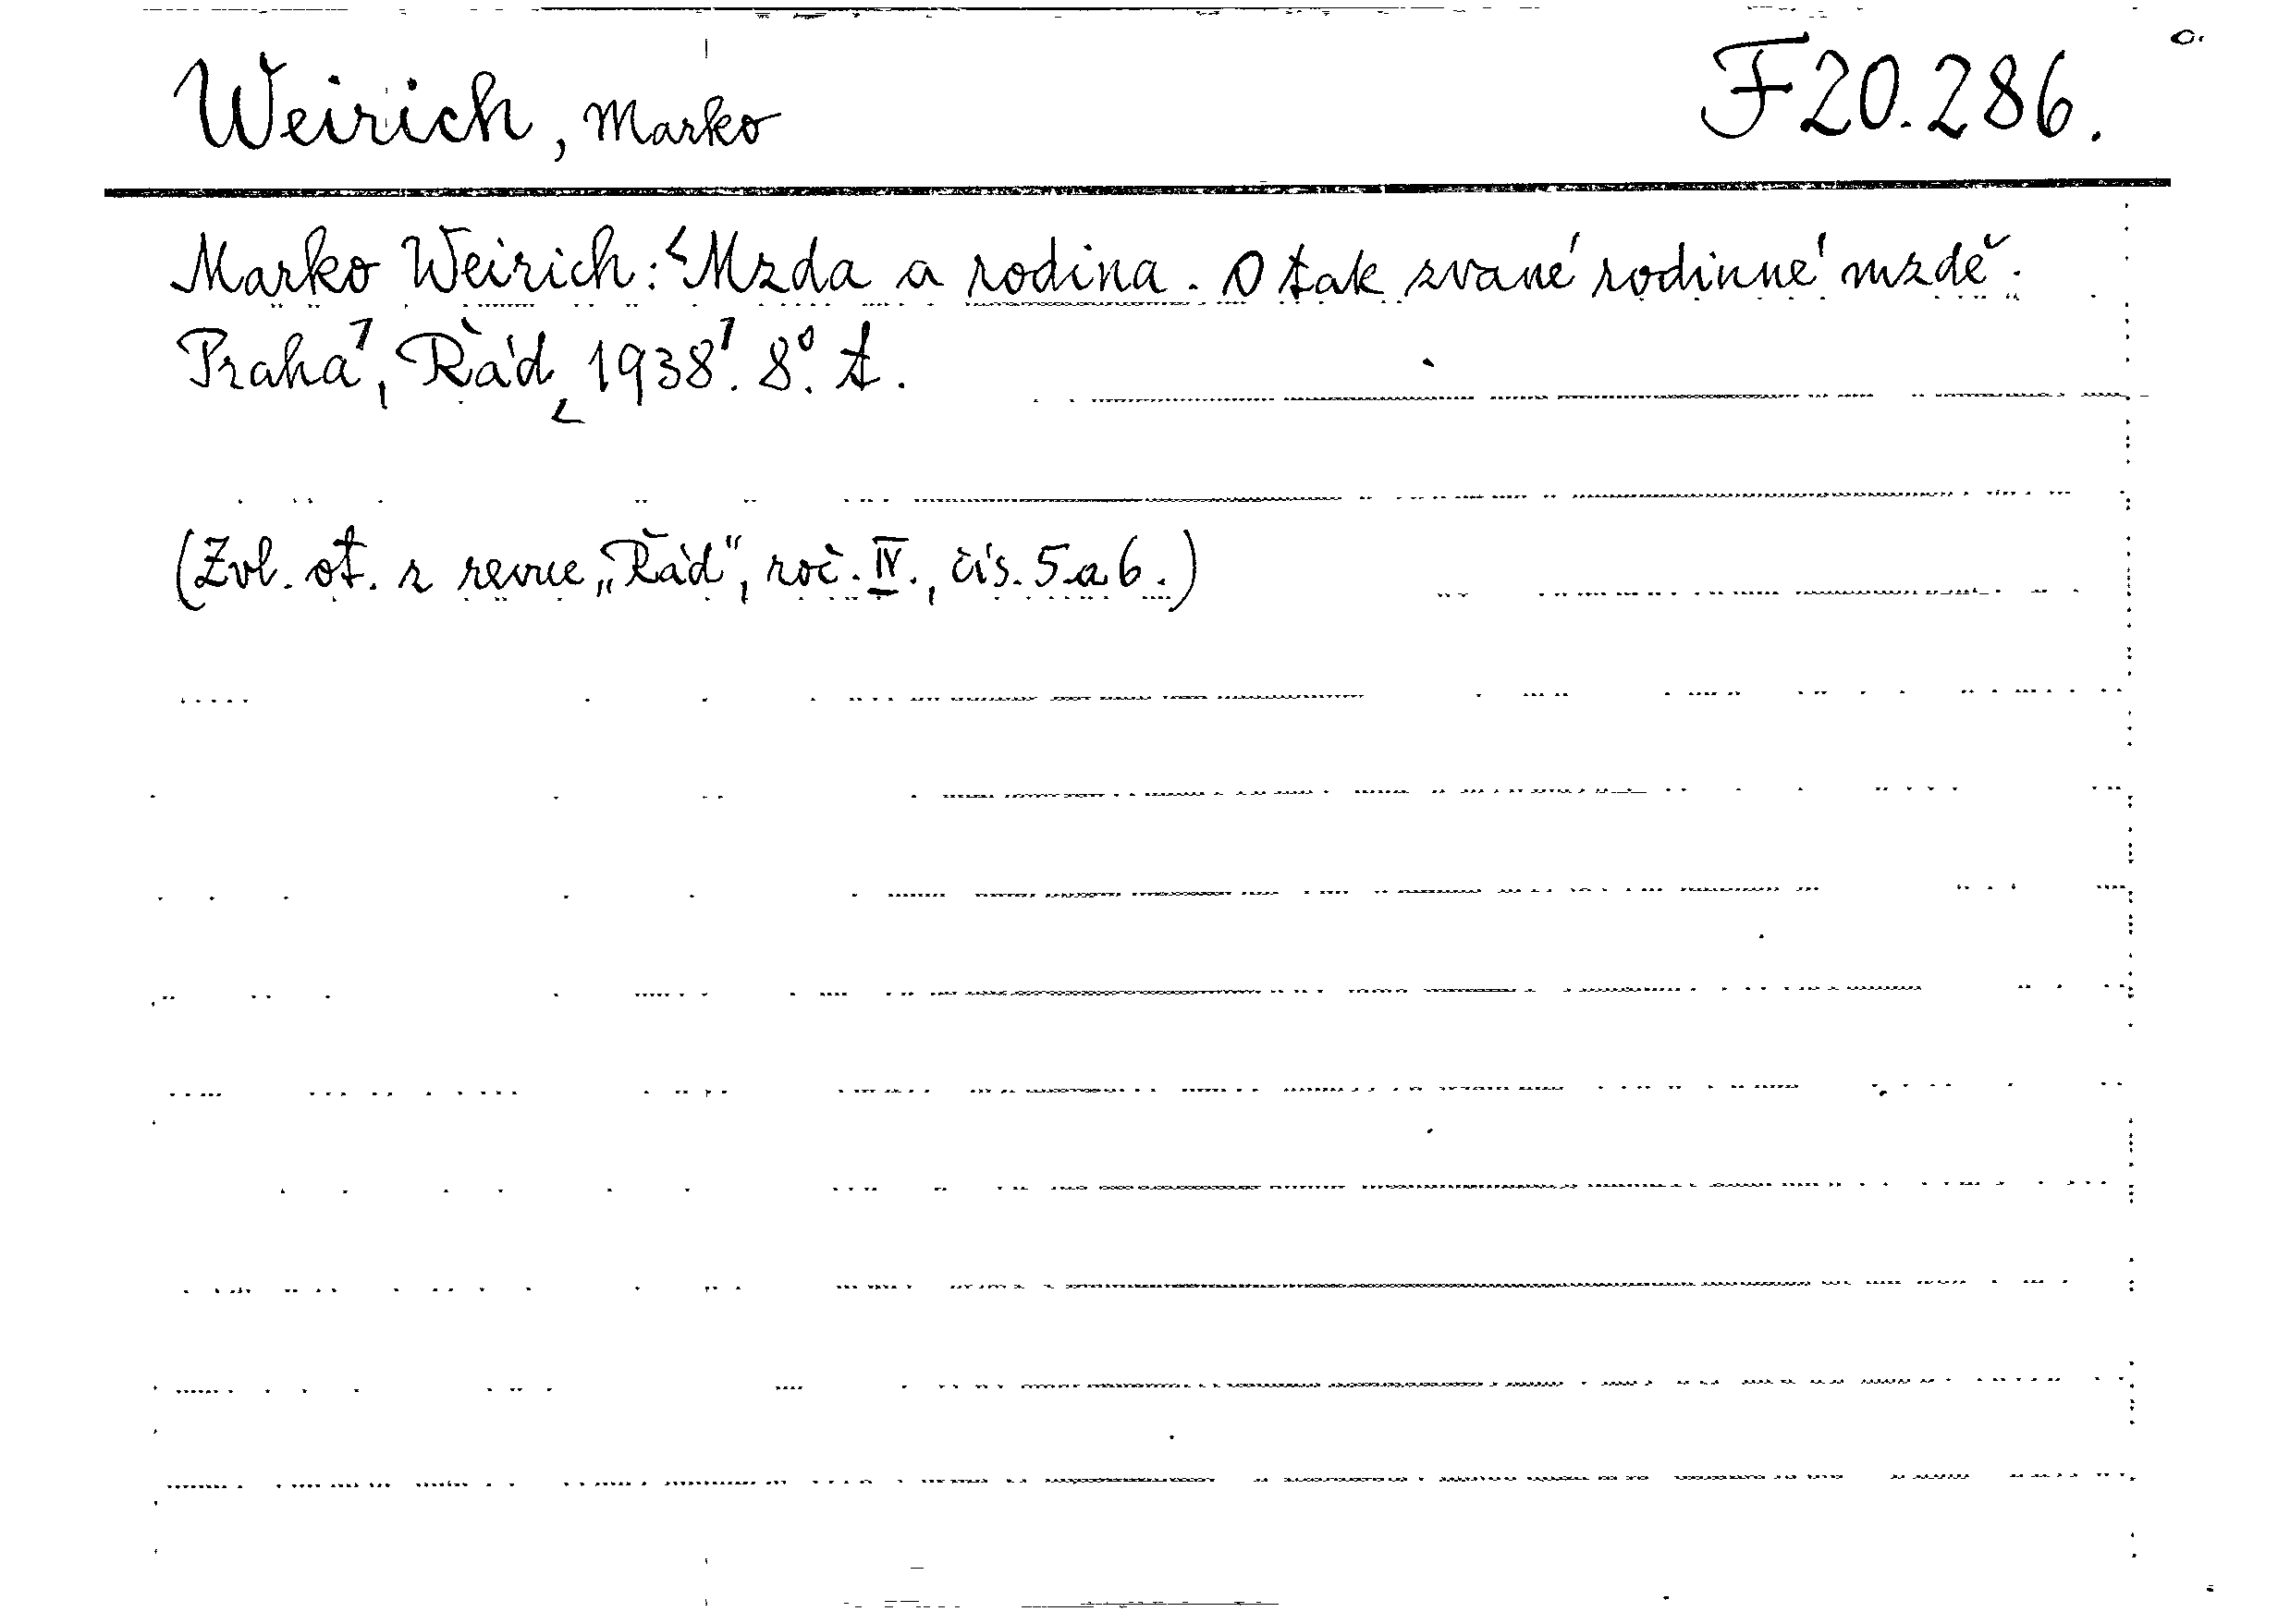 Weirich, Marko F 20.286.
Marko Weirich: Mzda a rodina. O tak zvané rodinné mzdě.
Praha, Řád, 1938. 8°. t.
(Zvl. ot. z revue „Řád“, roč. IV., čís. 5 a 6.)